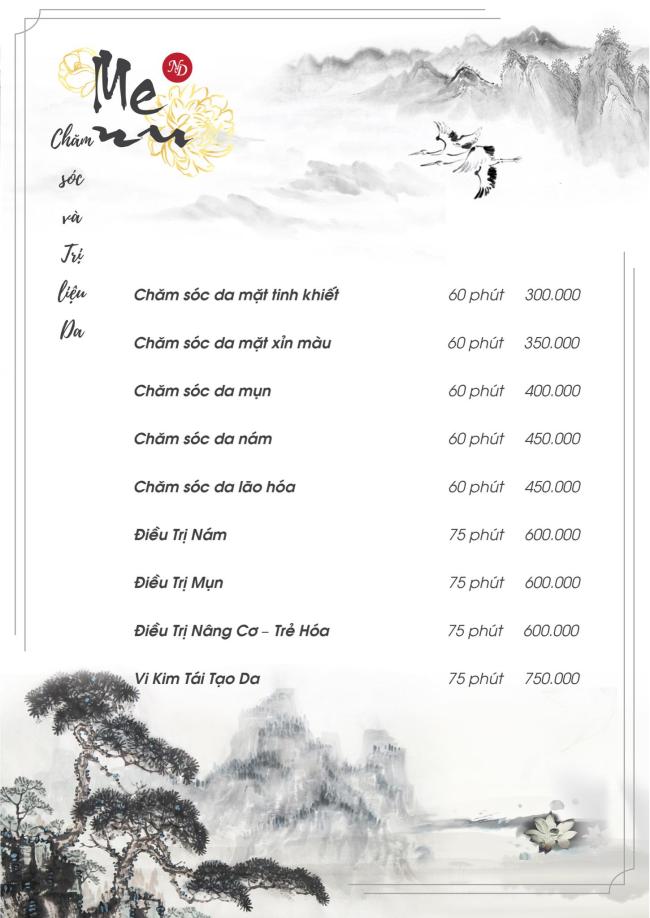 Me
nu
ND
Chăm
sóc
và
Trị
liệu
Da
Chăm sóc da mặt tinh khiết 60 phút 300.000
Chăm sóc da mặt xỉn màu 60 phút 350.000
Chăm sóc da mụn 60 phút 400.000
Chăm sóc da nám 60 phút 450.000
Chăm sóc da lão hóa 60 phút 450.000
Điều Trị Nám 75 phút 600.000
Điều Trị Mụn 75 phút 600.000
Điều Trị Nâng Cơ – Trẻ Hóa 75 phút 600.000
Vi Kim Tái Tạo Da 75 phút 750.000